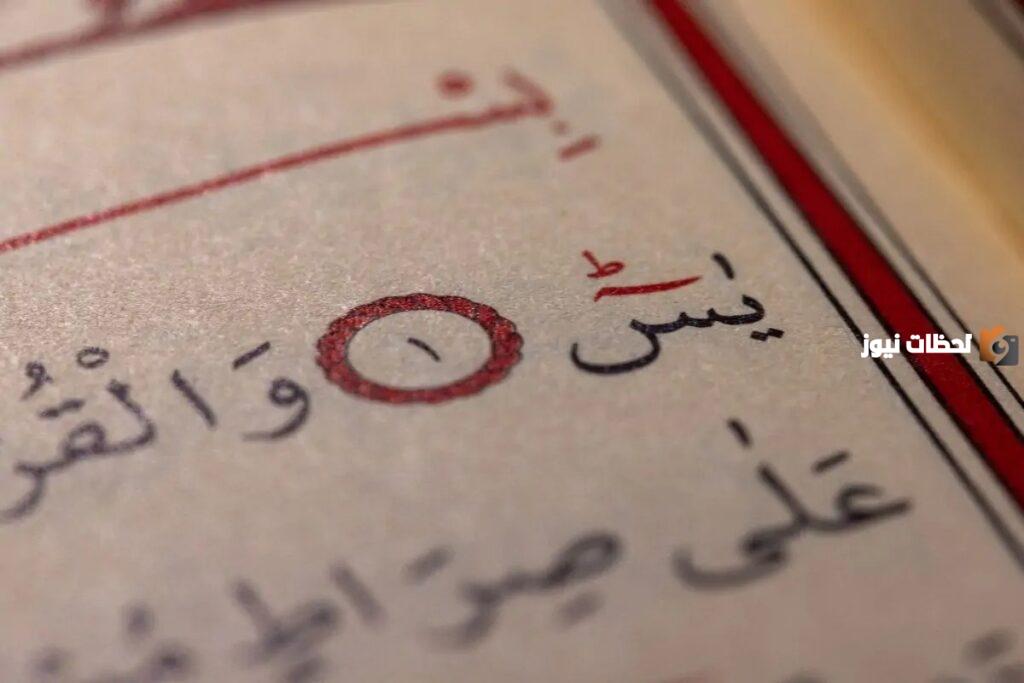 بِسْ
يٰسٓ ۚ ط ١ وَالْقُرْ
عَلٰى صِرَاطٍ
لحظات نيوز